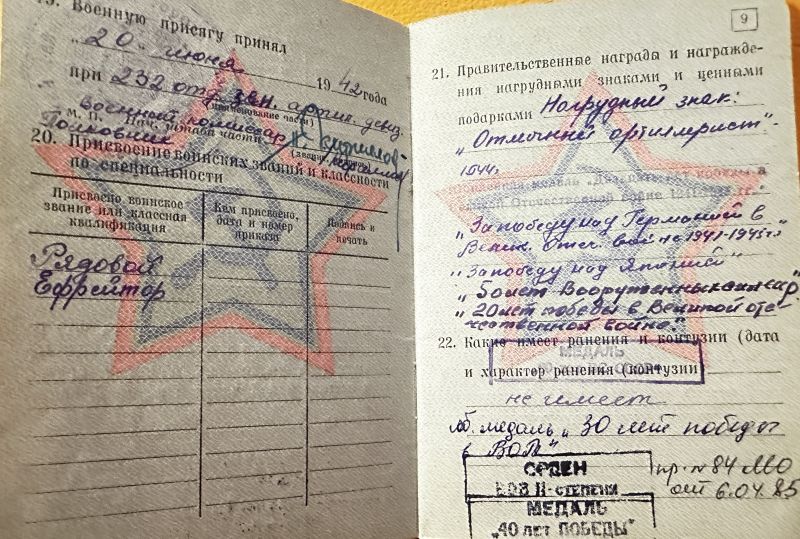 19. Военную присягу принял
„20" июня 1942 года
при 232 отд. зен. артил. дивиз.
(наименование части)
Военный комиссар
М. П. Нач. штаба части
Полковник
(звание, подпись)
20. Присвоение воинских званий и классности
по специальности
Присвоено воинское
звание или классная
квалификация
Кем присвоено,
дата и номер
приказа
Подпись и
печать
Рядовой
Ефрейтор
9
21. Правительственные награды и награжде-
ния нагрудными знаками и ценными
подарками Нагрудный знак:
„Отличный артиллерист".
1944.
„За победу над Германией в
Велик. Отеч. войне 1941-1945г."
„За победу над Японией"
„50 лет Вооруженных сил ссср"
„20 лет победы в Великой оте-
чественной войне."
22. Какие имеет ранения и контузии (дата
МЕДАЛЬ
и характер ранения (контузии
не имеет
юб. медаль „30 лет победы
в ВОВ"
ОРДЕН
ВОВ II-СТЕПЕНИ
пр. № 84 МО
от 6.04.85
МЕДАЛЬ
„40 лет ПОБЕДЫ"